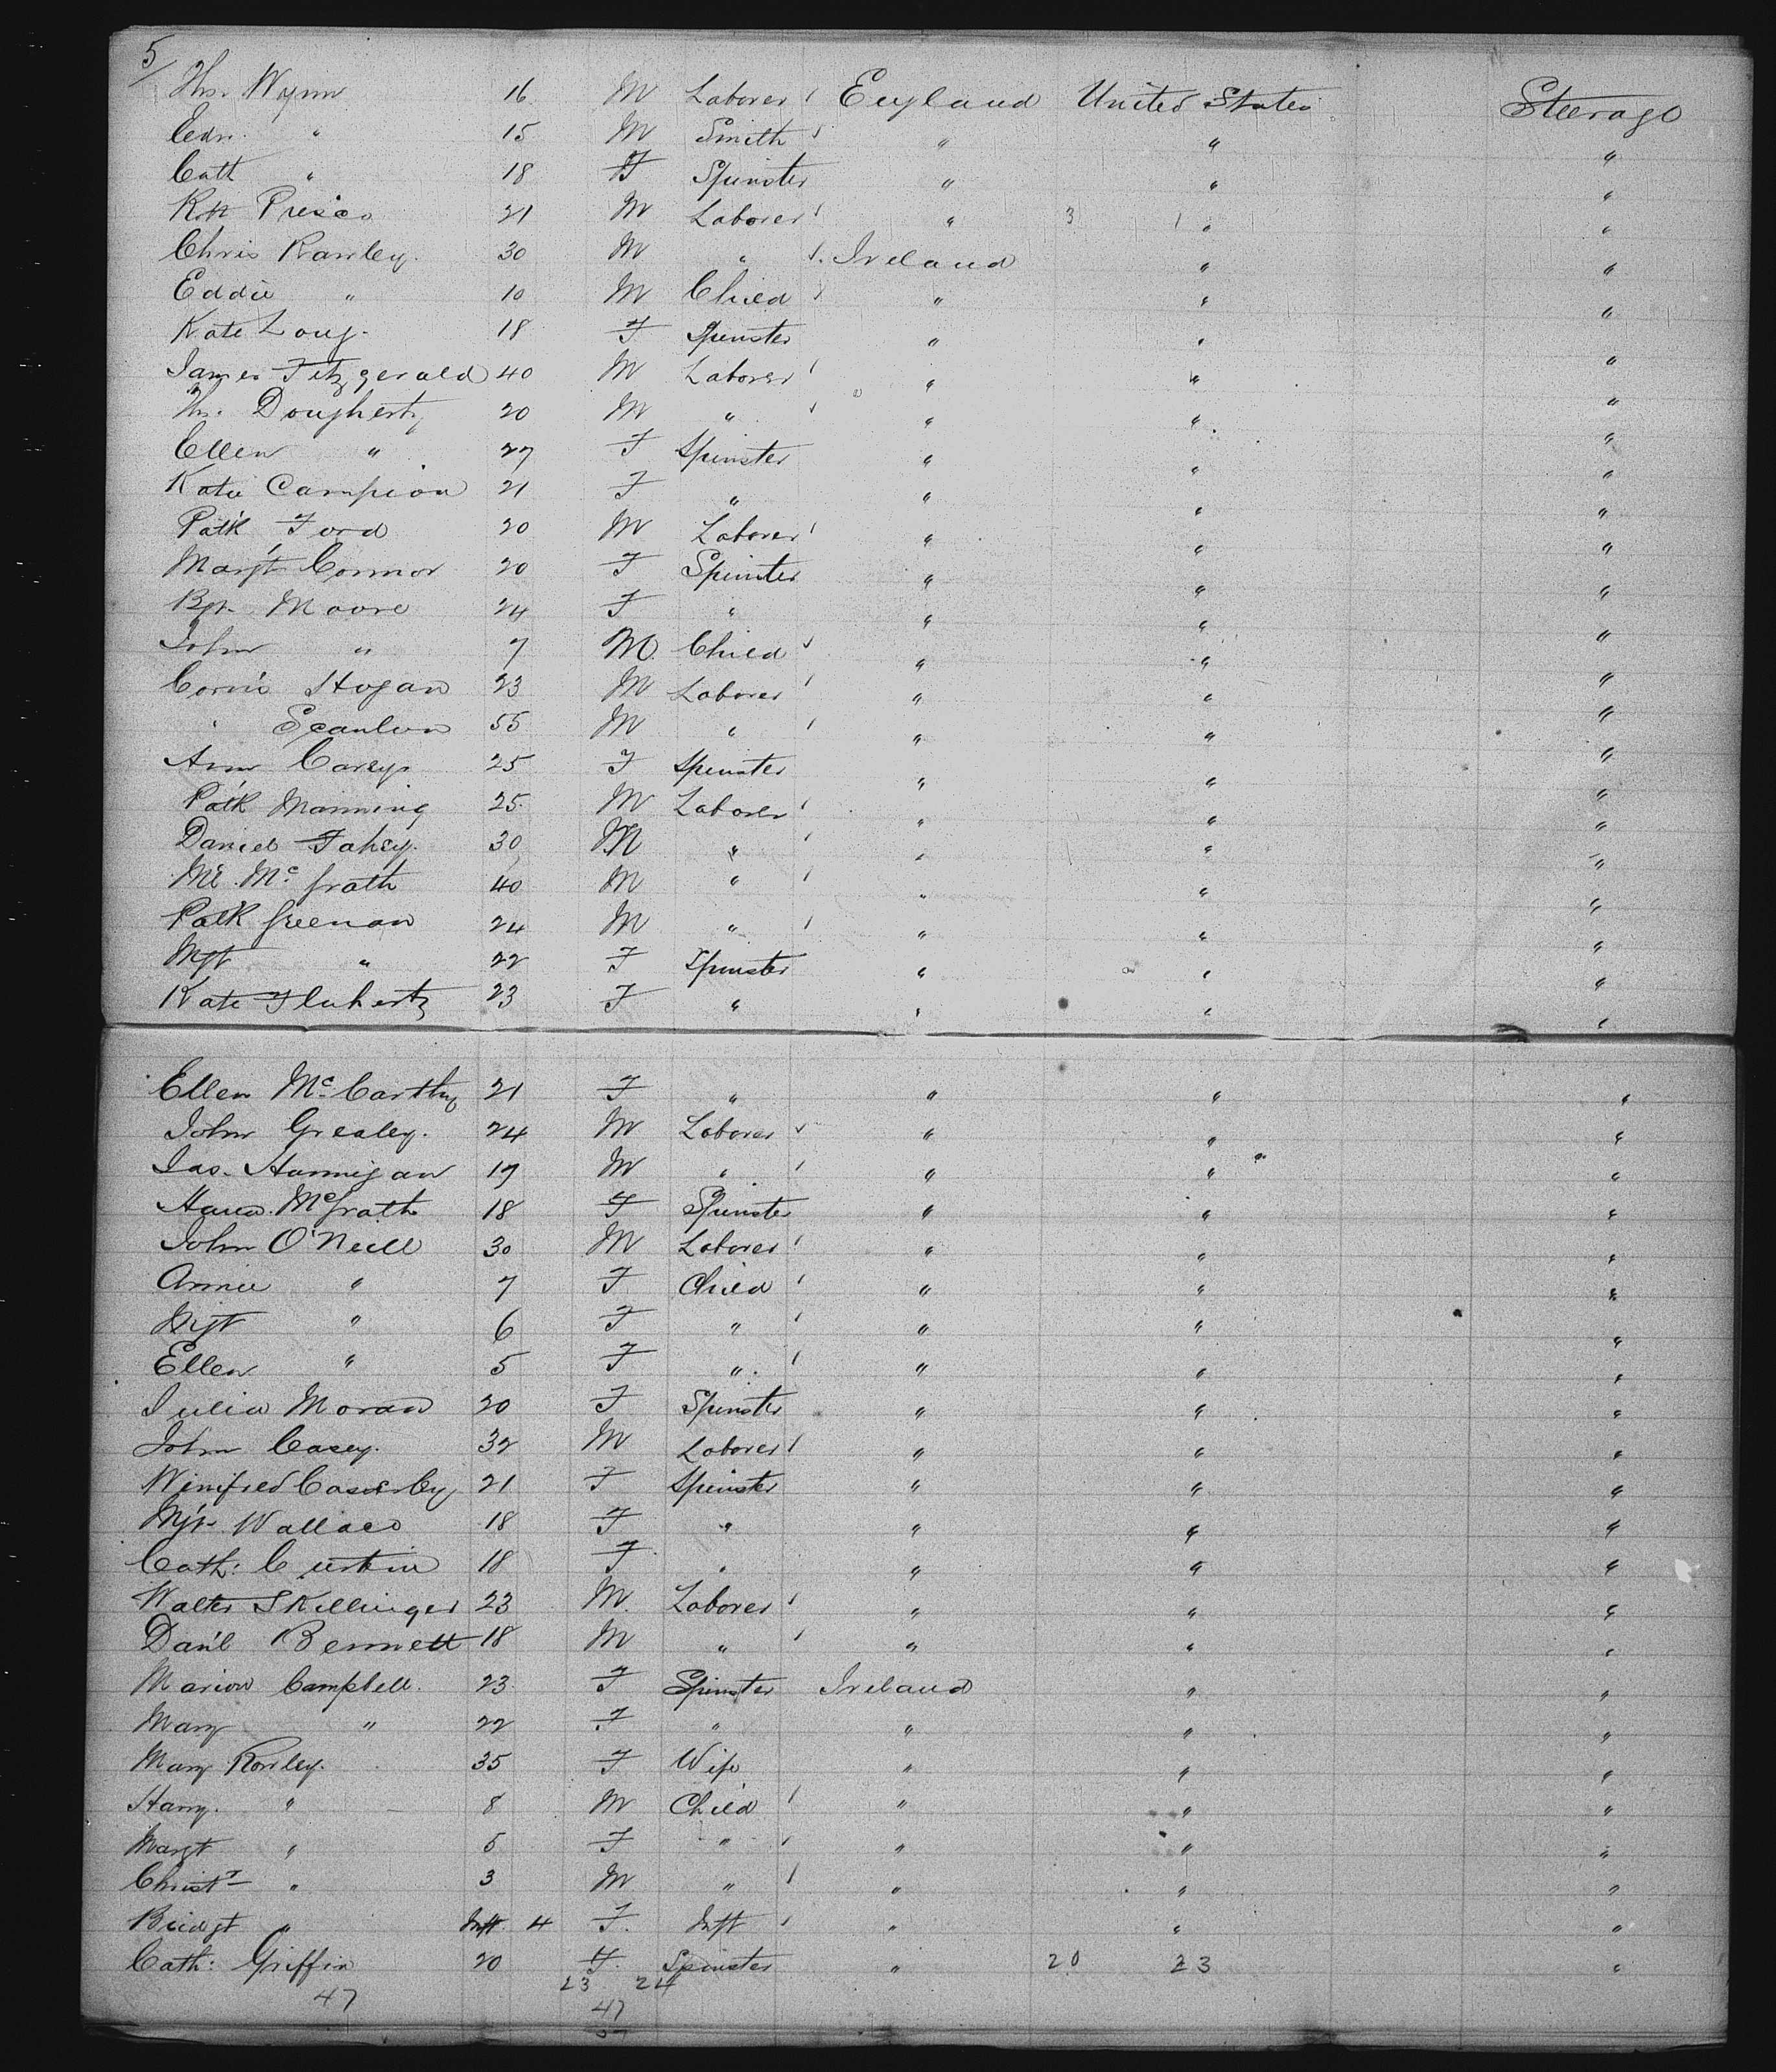 5/
Ths. Wynn 16 M Laborer England United States Steerage
Edw. " 15 M Smith " " "
Cath " 18 F Spinster " " "
21 M Laborer " 3 1 " "
Chris Rawley. 30 M " Ireland " "
Eddie " 10 M Child " " "
Kate Long. 18 F Spinster " " "
James Fitzgerald 40 M Laborer " " "
Ths. Dougherty 20 M " " " "
Ellen " 27 F Spinster " " "
Katie Campion 21 F " " " "
Patk Ford 20 M Laborer " " "
Margt Connor 20 F Spinster " " "
Bgt. Moore 24 F " " " "
John " 7 M. Child " " "
Corn's Hogan 23 M Laborer " " "
" Scanlon 55 M " " " "
Ann Carey 25 F Spinster " " "
Patk Manning 25 M Laborer " " "
Daniel Fahey. 30 M " " " "
Ml. Mc Grath 40 M " " " "
Patk Greenan 24 M " " " "
Mgt " 22 F Spinster " " "
Kate Flaherty 23 F " " " "
Ellen McCarthy 21 F " " " "
John Grealey. 24 M Laborer " " "
Jas. Hannigan 19 M " " " "
Hana. McGrath 18 F Spinster " " "
John O'Neill 30 M Laborer " " "
Annie " 7 F Child " " "
Mgt " 6 F " " " "
Ellen " 5 F " " " "
Julia Moran 20 F Spinster " " "
John Casey. 32 M Laborer " " "
Winifred Casserley 21 F Spinster " " "
Mgt. Wallace 18 F " " " "
Cath: Curtin 18 F " " " "
Walter Skillinger 23 M. Laborer " " "
Dan'l Bennett 18 M " " " "
Marion Campbell. 23 F Spinster Ireland " "
Mary " 22 F " " " "
Mary Rowley. 35 F Wife " " "
Harry. " 8 M Child " " "
Margt " 5 F " " " "
Christr " 3 M " " " "
Bridgt " Inft. 4 F. Inft " " "
Cath: Griffin 20 F. Spinster " 20 23 "
47 23 24
47